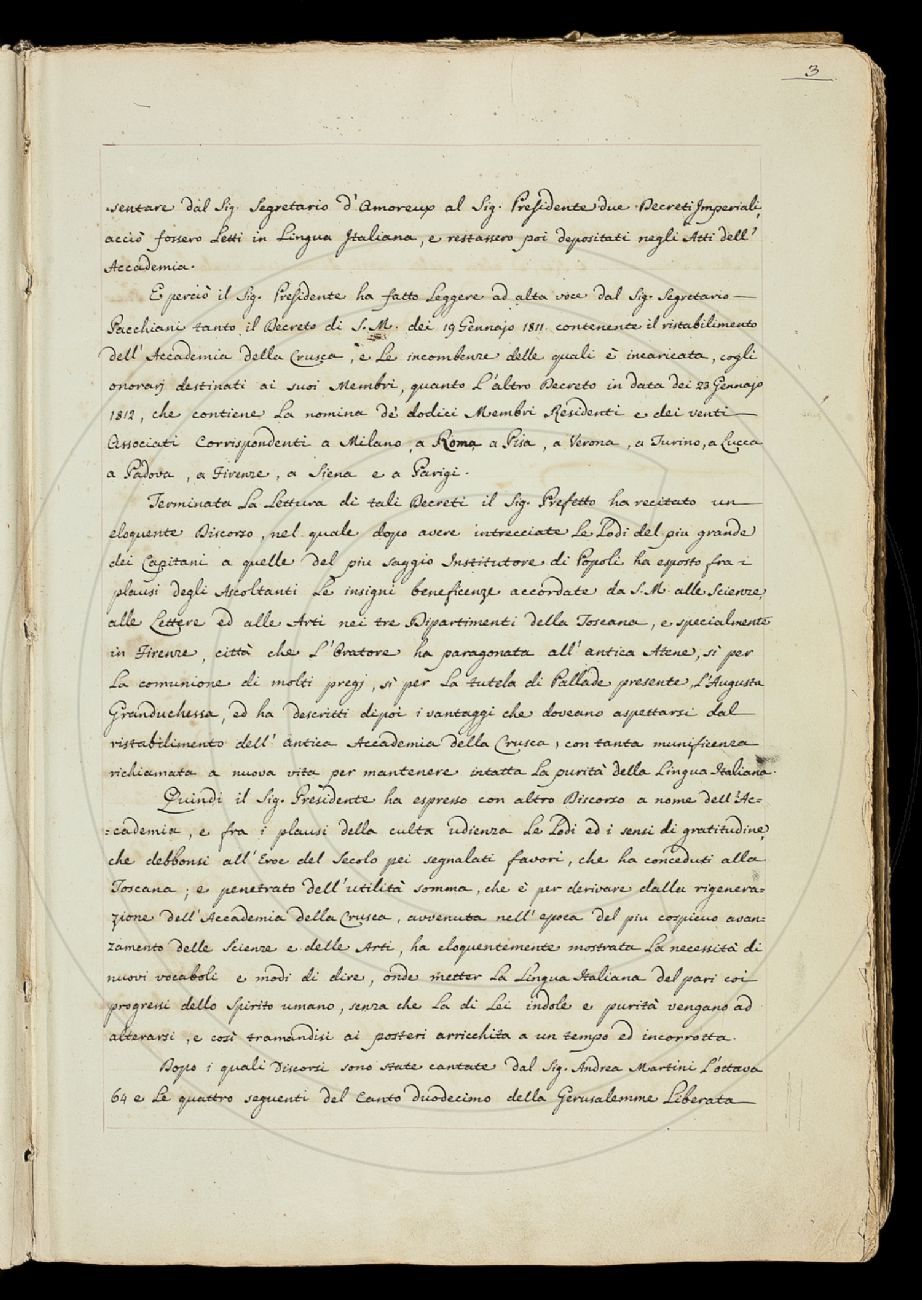 3
sentare dal Sig. Segretario d'Amoreux al Sig. Presidente due Decreti Imperiali,
acciò fossero Letti in Lingua Italiana, e restassero poi depositati negli Atti dell'
Accademia.
E perciò il Sig. Presidente ha fatto Leggere ad alta voce dal Sig. Segretario
Pacchiani tanto il Decreto di S.M. dei 19 Gennajo 1811 contenente il ristabilimento
dell'Accademia della Crusca, e Le incombenze delle quali è incaricata, cogli
onorarj destinati ai suoi Membri, quanto L'altro Decreto in data dei 23 Gennajo
1812, che contiene La nomina de' dodici Membri Residenti e dei venti
Associati Corrispondenti a Milano, a Roma, a Pisa, a Verona, a Turino, a Lucca
a Padova, a Firenze, a Siena e a Parigi.
Terminata La Lettura di tali Decreti il Sig. Prefetto ha recitato un
eloquente Discorso, nel quale dopo avere intrecciate Le Lodi del piu grande
dei Capitani a quelle del piu saggio Institutore di Popoli ha esposto fra i
plausi degli Ascoltanti Le insigni beneficenze accordate da S.M. alle Scienze,
alle Lettere ed alle Arti nei tre Dipartimenti della Toscana, e specialmente
in Firenze, città che L'Oratore ha paragonata all'antica Atene, sì per
La comunione di molti pregj, sì per La tutela di Pallade presente, L'Augusta
Granduchessa, ed ha descritti dipoi i vantaggi che doveano aspettarsi dal
ristabilimento dell'antica Accademia della Crusca, con tanta munificenza
richiamata a nuova vita per mantenere intatta La purità della Lingua Italiana.
Quindi il Sig. Presidente ha espresso con altro Discorso a nome dell'Ac=
=cademia, e fra i plausi della culta udienza Le Lodi ed i sensi di gratitudine,
che debbonsi all'Eroe del Secolo pei segnalati favori, che ha conceduti alla
Toscana; e penetrato dell'utilità somma, che è per derivare dalla rigenera=
zione dell'Accademia della Crusca, avvenuta nell'epoca del piu cospicuo avan=
zamento delle Scienze e delle Arti, ha eloquentemente mostrata La necessità di
nuovi vocaboli e modi di dire, onde metter La Lingua Italiana del pari coi
progressi dello Spirito umano, senza che La di Lei indole e purità vengano ad
alterarsi, e così tramandisi ai posteri arricchita a un tempo ed incorrotta.
Dopo i quali Discorsi sono state cantate dal Sig. Andrea Martini L'ottava
64 e Le quattro seguenti del Canto duodecimo della Gerusalemme Liberata